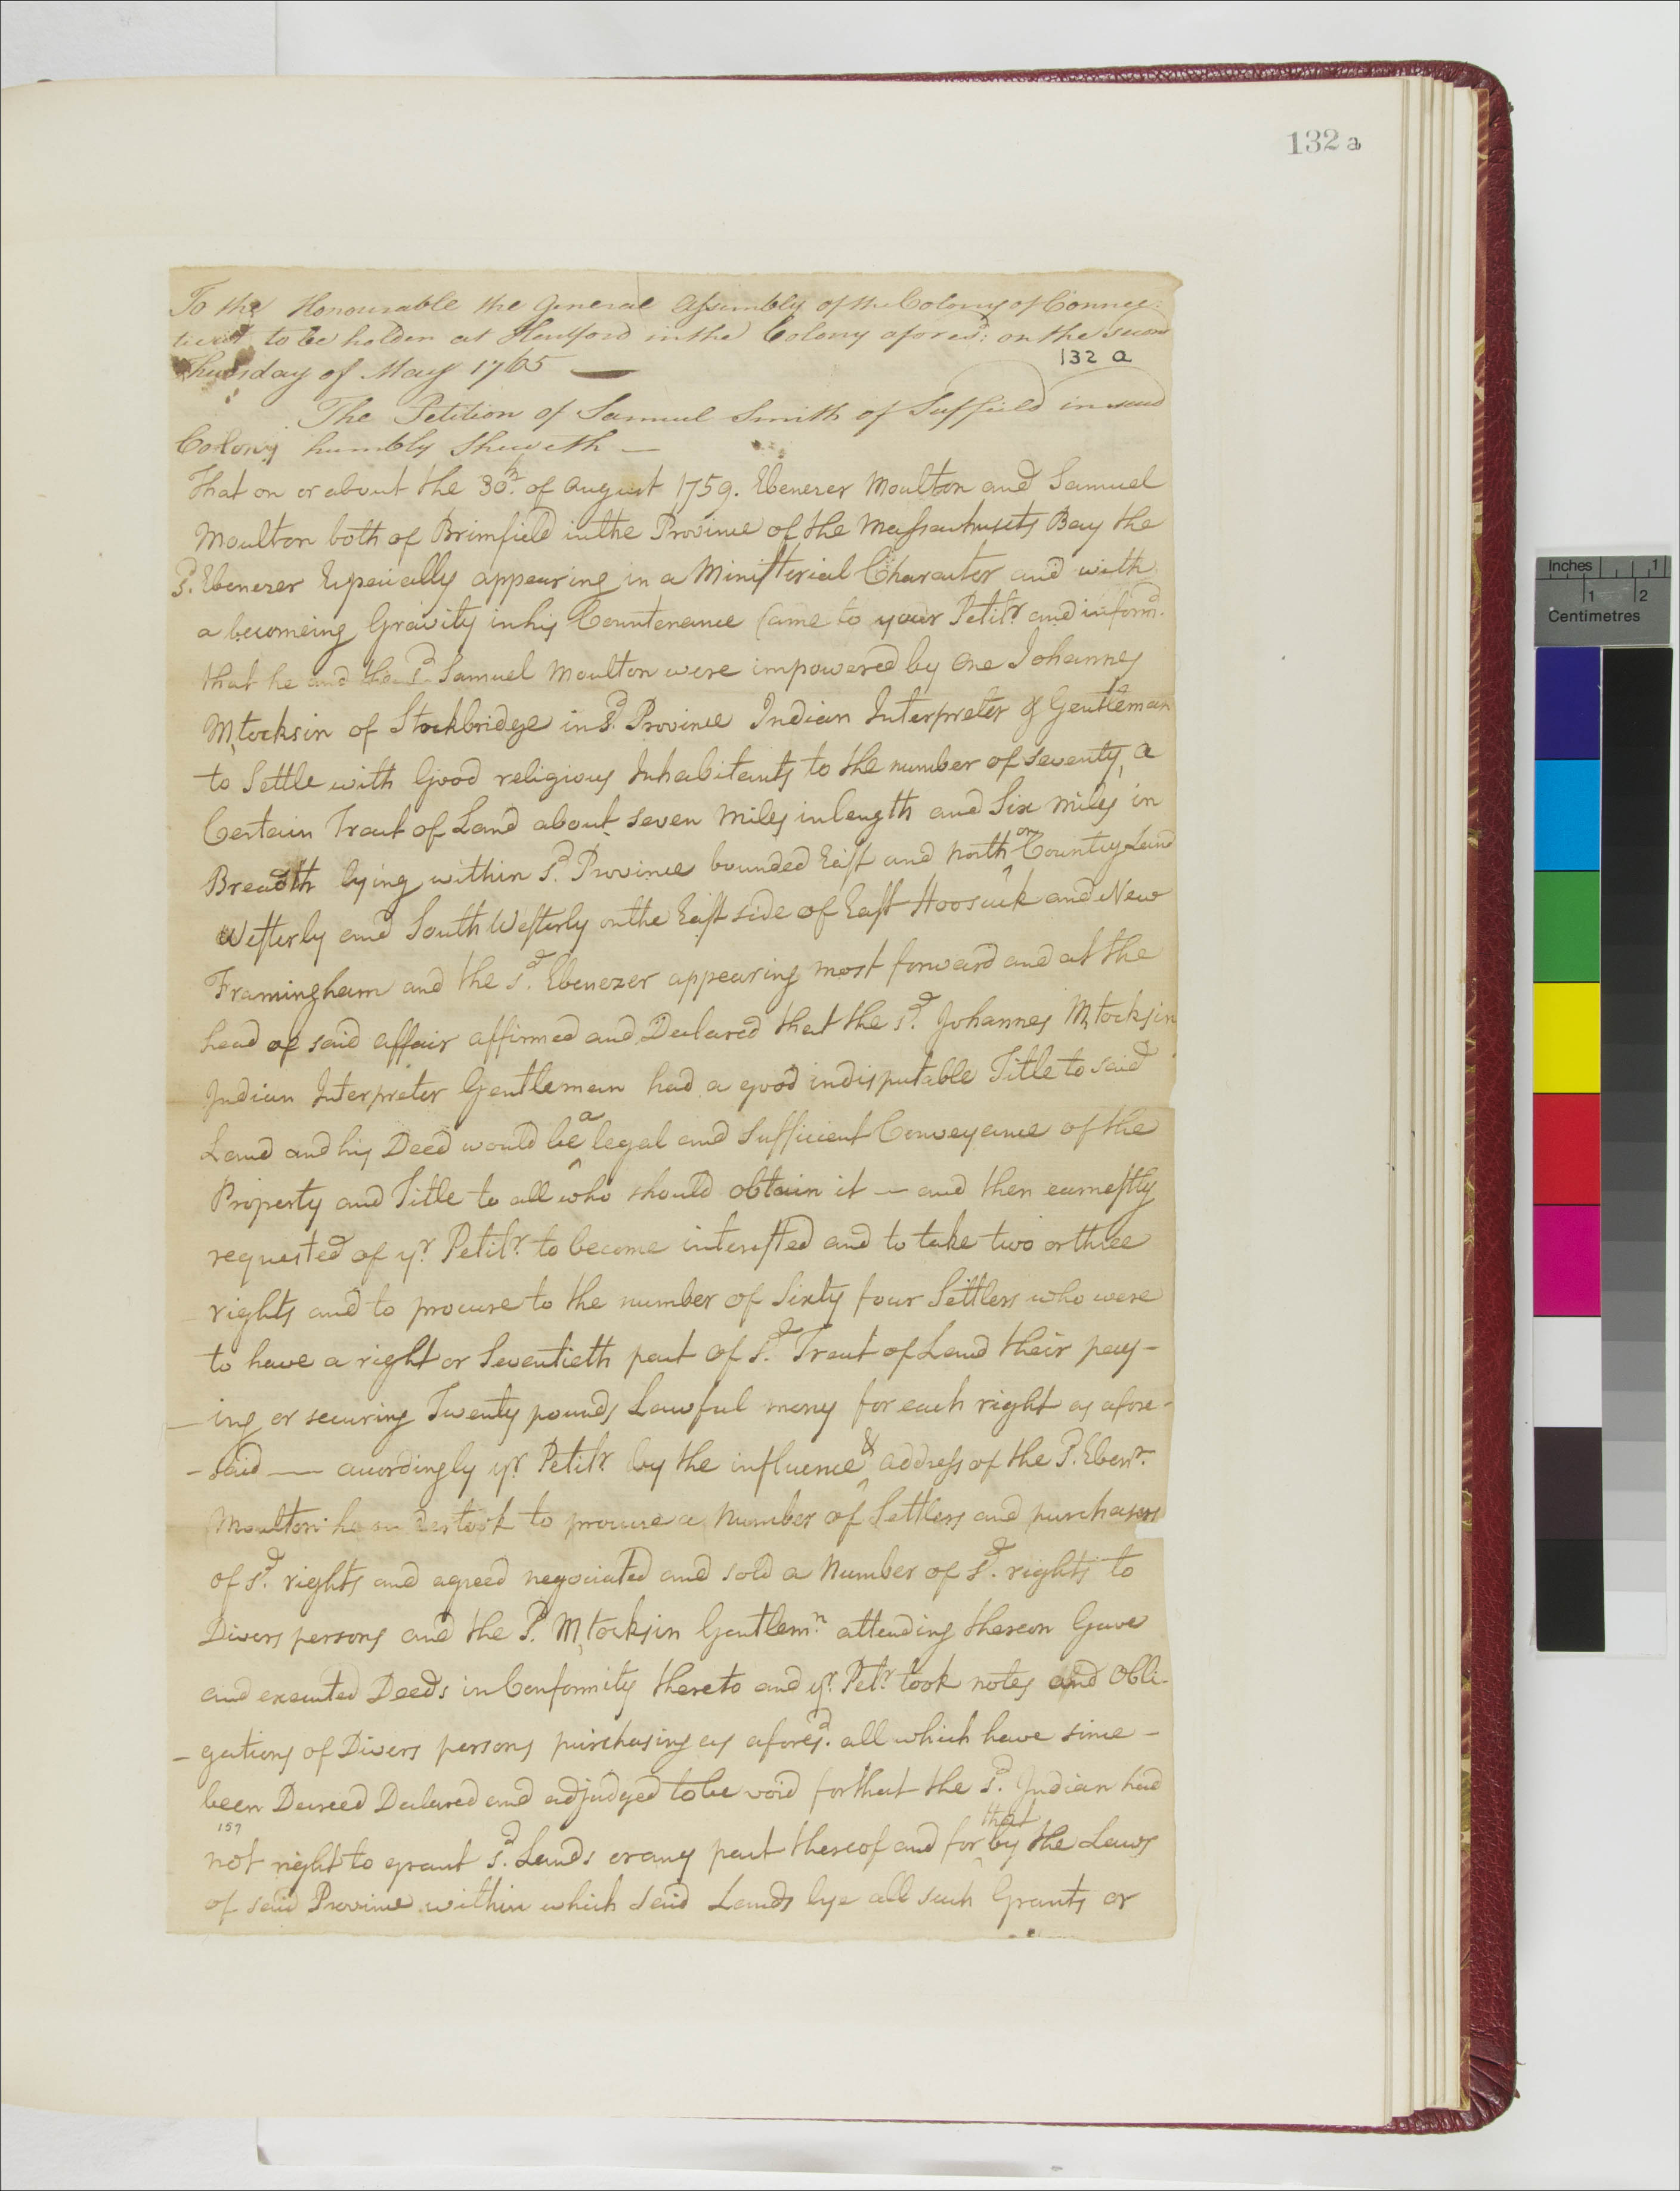 132 a
To the Honourable the General Assembly of the Colony of Connec:
ticut to be holden at Hartford in the Colony afores.d: on the second
Thursday of May 1765 —
132 a
The Petition of Samuel Smith of Suffield in said
Colony humbly sheweth —
That on or about the 30th. of August 1759. Ebenezer Moulton and Samuel
Moulton both of Brimfield in the Province of the Massachusets Bay the
sd. Ebenezer Especially appearing in a Ministerial Character and with
a becomeing Gravity in his Countenance Came to your Petitr. and informd.
that he and the sd. Samuel Moulton were impowered by One Johannes
Mtocksin of Stockbridge in sd. Province Indian Interpreter & Gentleman
to Settle with Good religious Inhabitants to the number of seventy, a
Certain Tract of Land about seven Miles in length and Six Miles in
Breadth lying within sd. Province bounded East and North on Country Land
Westerly and South Westerly on the East side of East Hoosuck and New
Framingham and the sd. Ebenezer appearing most forward and at the
head of said affair affirmed and Declared that the sd. Johannes Mtocksin
Indian Interpreter Gentleman had a good indisputable Title to said
Land and his Deed would be a legal and Sufficient Conveyance of the
Property and Title to all who should obtain it — and then earnestly
requested of yr. Petitr. to become interested and to take two or three
rights and to procure to the number of Sixty four Settlers who were
to have a right or Seventieth part of sd. Tract of Land their pay-
-ing or securing Twenty pounds Lawful mony for each right as afore-
-said — accordingly yr. Petitr. by the influence & address of the sd. Ebenr.
Moulton he undertook to procure a Number of Settlers and purchasers
of sd. rights and agreed negociated and sold a Number of sd. rights to
Divers persons and the sd. Mtocksin Gentlemn. attending thereon Gave
and executed Deeds in Conformity thereto and yr. Petr. took notes and Obli-
-gations of Divers persons purchasing as aforesd. all which have since -
been Decreed Declared and adjudged to be void for that the sd. Indian had
157
not right to grant sd. Lands or any part thereof and for that by the Laws
of said Province within which said Lands lye all such Grants or
Inches 1
1 2
Centimetres